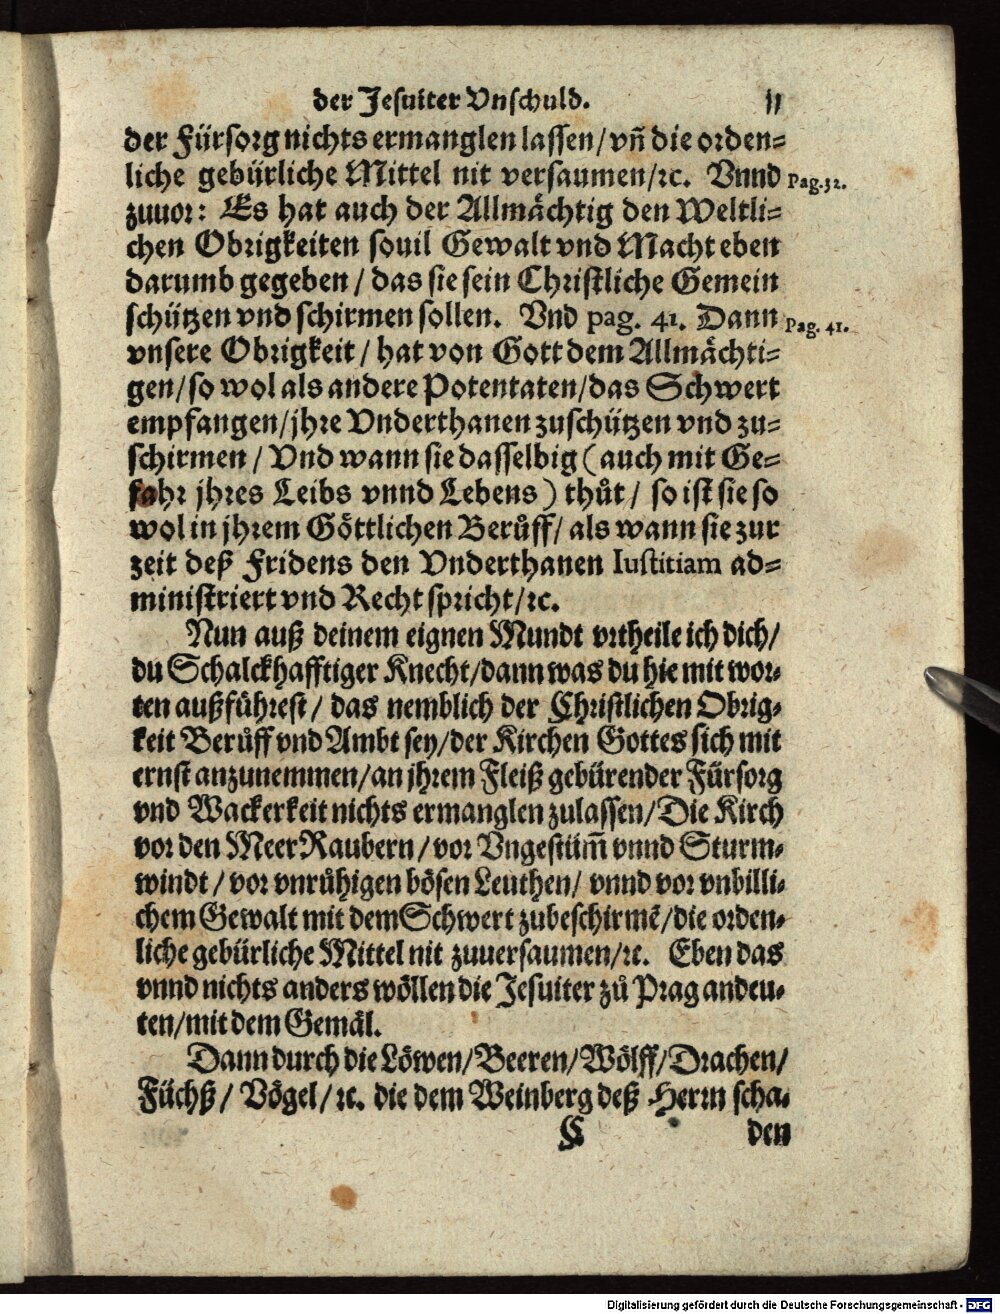 der Jesuiter Vnschuld. 11
der Fürsorg nichts ermanglen lassen/ vñ die orden=
liche gebürliche Mittel nit versaumen/ꝛc. Vnnd Pag.32.
zuuor: Es hat auch der Allmächtig den Weltli=
chen Obrigkeiten souil Gewalt vnd Macht eben
darumb gegeben / das sie sein Christliche Gemein
schützen vnd schirmen sollen. Vnd pag. 41. Dann Pag. 41.
vnsere Obrigkeit / hat von Gott dem Allmächti=
gen/ so wol als andere Potentaten/das Schwert
empfangen/jhre Vnderthanen zuschützen vnd zu=
schirmen / Vnd wann sie dasselbig (auch mit Ge=
fahr jhres Leibs vnnd Lebens) thůt / so ist sie so
wol in jhrem Göttlichen Berůff/ als wann sie zur
zeit deß Fridens den Vnderthanen Iustitiam ad=
ministriert vnd Recht spricht/ꝛc.
Nun auß deinem eignen Mundt vrtheile ich dich/
du Schalckhafftiger Knecht/dann was du hie mit wor=
ten außführest / das nemblich der Christlichen Obrig=
keit Berůff vnd Ambt sey/der Kirchen Gottes sich mit
ernst anzunemmen/an jhrem Fleiß gebürender Fürsorg
vnd Wackerkeit nichts ermanglen zulassen/Die Kirch
vor den MeerRaubern / vor Vngestüm̃ vnnd Sturm=
windt / vor vnrůhigen bösen Leuthen/ vnnd vor vnbilli=
chem Gewalt mit dem Schwert zubeschirmẽ/die orden=
liche gebürliche Mittel nit zuuersaumen/ꝛc. Eben das
vnnd nichts anders wöllen die Jesuiter zů Prag andeu=
ten/mit dem Gemäl.
Dann durch die Löwen/Beeren/Wölff/Drachen/
Füchß/ Vögel/ ꝛc. die dem Weinberg deß Herrn scha=
C den
Digitalisierung gefördert durch die Deutsche Forschungsgemeinschaft - DFG